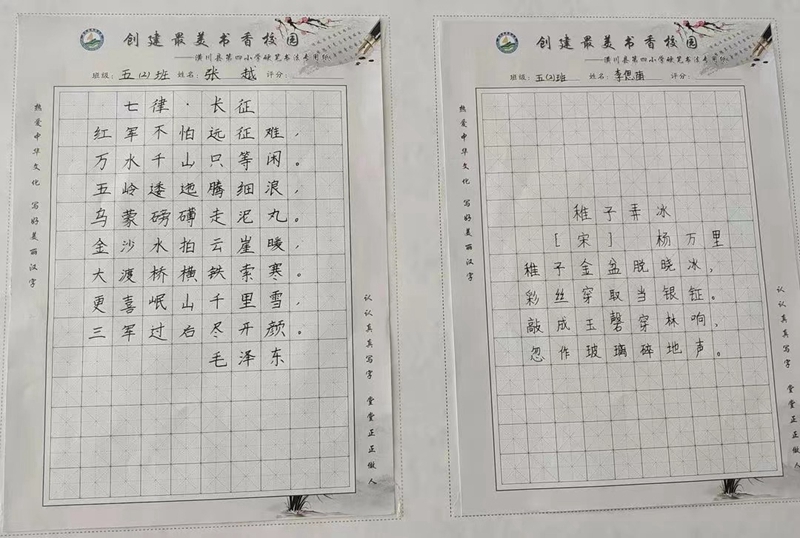 创建最美书香校园
——潢川县第四小学硬笔书法专用纸
班级：五(2)班 姓名：张越 评分：
七律·长征
红军不怕远征难，
万水千山只等闲。
五岭逶迤腾细浪，
乌蒙磅礴走泥丸。
金沙水拍云崖暖，
大渡桥横铁索寒。
更喜岷山千里雪，
三军过后尽开颜。
毛泽东
热爱中华文化 写好美丽汉字
认认真真写字 堂堂正正做人
创建最美书香校园
——潢川县第四小学硬笔书法专用
班级：五(2)班 姓名：李 评分：
稚子弄冰
[宋] 杨万里
稚子金盆脱晓冰，
彩丝穿取当银钲。
敲成玉磬穿林响，
忽作玻璃碎地声。
热爱中华文化 写好美丽汉字
认认真真写字 堂堂正正做人